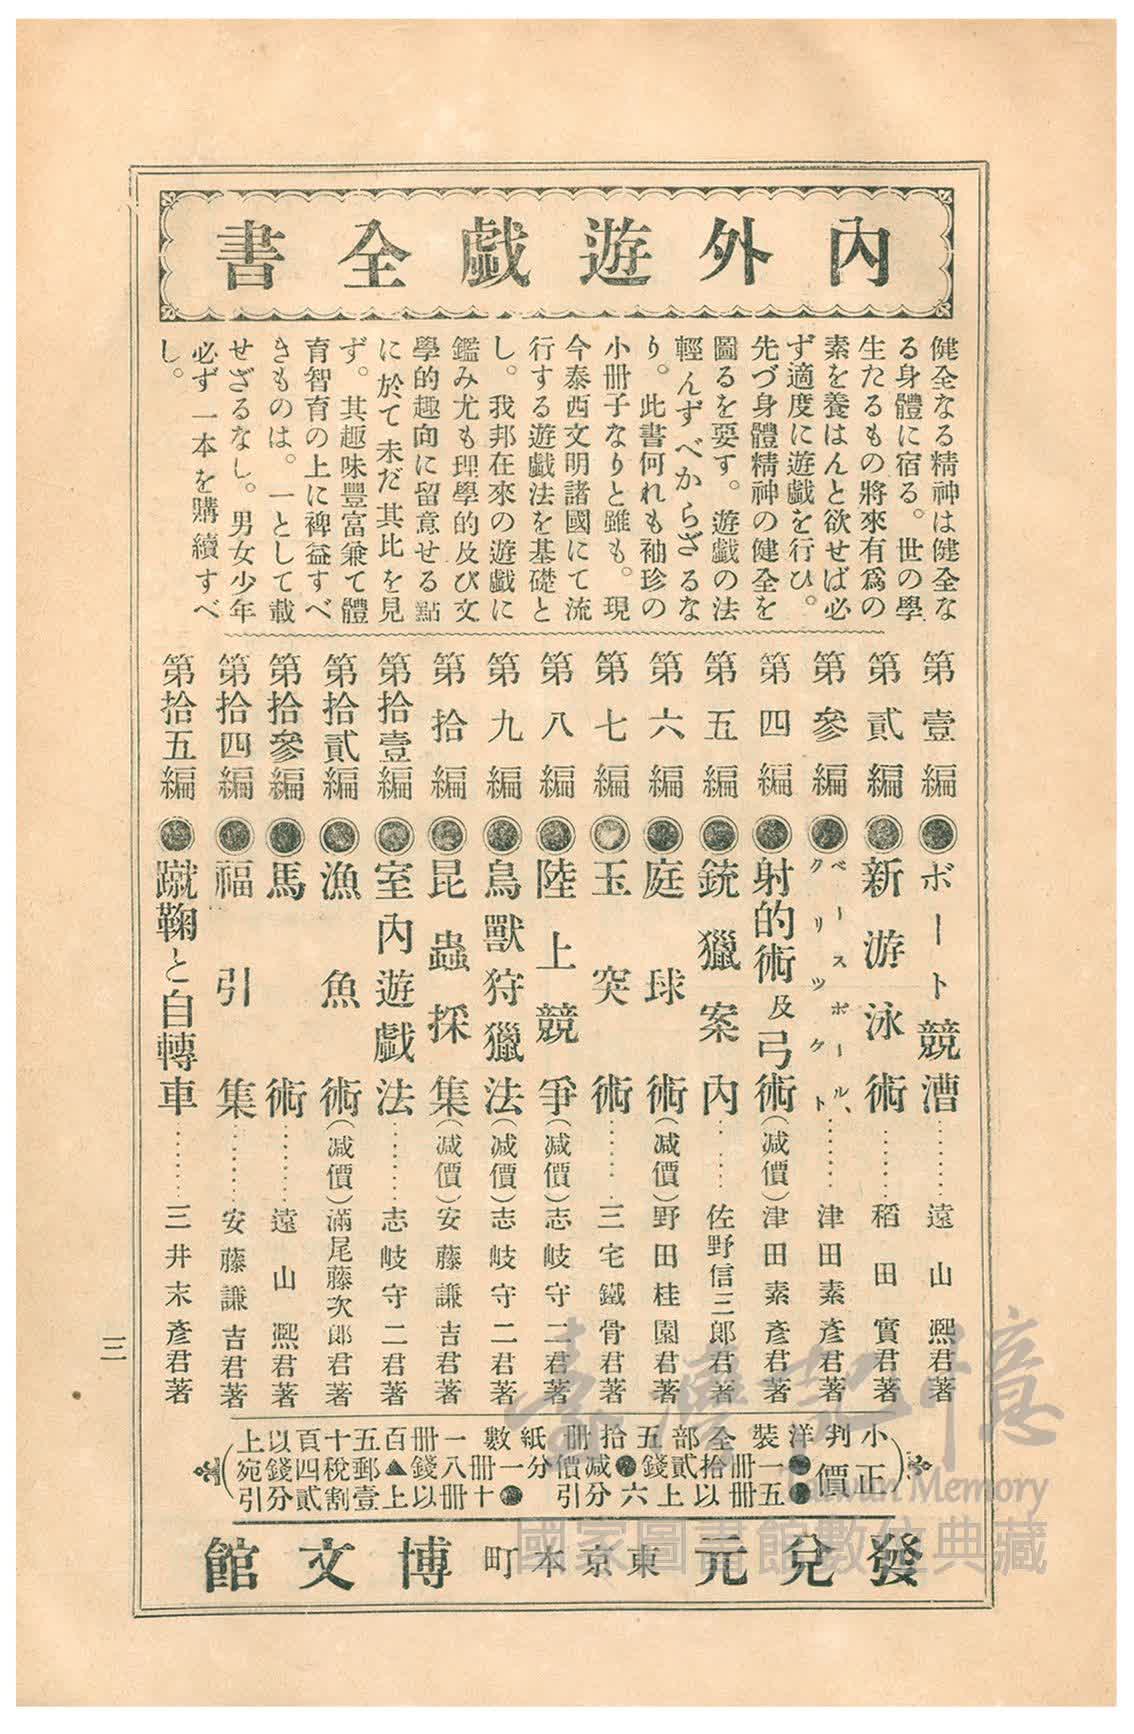 內外遊戲全書
健全なる精神は健全な
る身體に宿る。世の學
生たるもの將來有爲の
素を養はんと欲せば必
ず適度に遊戯を行ひ。
先づ身體精神の健全を
圖るを要す。遊戯の法
輕んずべからざるな
り。此書何れも袖珍の
小冊子なりと雖も。現
今泰西文明諸國にて流
行する遊戯法を基礎と
し。我邦在來の遊戯に
鑑み尤も理學的及び文
學的趣向に留意せる點
に於て未だ其比を見
ず。其趣味豐富兼て體
育智育の上に裨益すべ
きものは。一として載
せざるなし。男女少年
必ず一本を購續すべ
し。
第壹編●ボート競漕………遠山熈君著
第貳編●新游泳術………稻田實君著
第參編●ベースボール、クリツケツト………津田素彥君著
第四編●射的術及弓術(減價)津田素彥君著
第五編●銃獵案內………佐野信三郎君著
第六編●庭球術(減價)野田桂園君著
第七編●玉突術………三宅鐵骨君著
第八編●陸上競爭(減價)志岐守二君著
第九編●鳥獸狩獵法(減價)志岐守二君著
第拾編●昆蟲採集(減價)安藤謙吉君著
第拾壹編●室內遊戲法………志岐守二君著
第拾貳編●漁魚術(減價)滿尾藤次郎君著
第拾參編●馬術………遠山熈君著
第拾四編●福引集………安藤謙吉君著
第拾五編●蹴鞠と自轉車………三井末彥君著
小判洋裝全部五拾冊紙數一冊百五十頁以上
正價●一冊拾貳錢●減價一冊八錢▲郵稅四錢宛
●五冊以上六分引●十冊以上壹割貳分引
發兌元 東京本町 博文館
三
臺灣記憶
Taiwan Memory
國家圖書館數位典藏